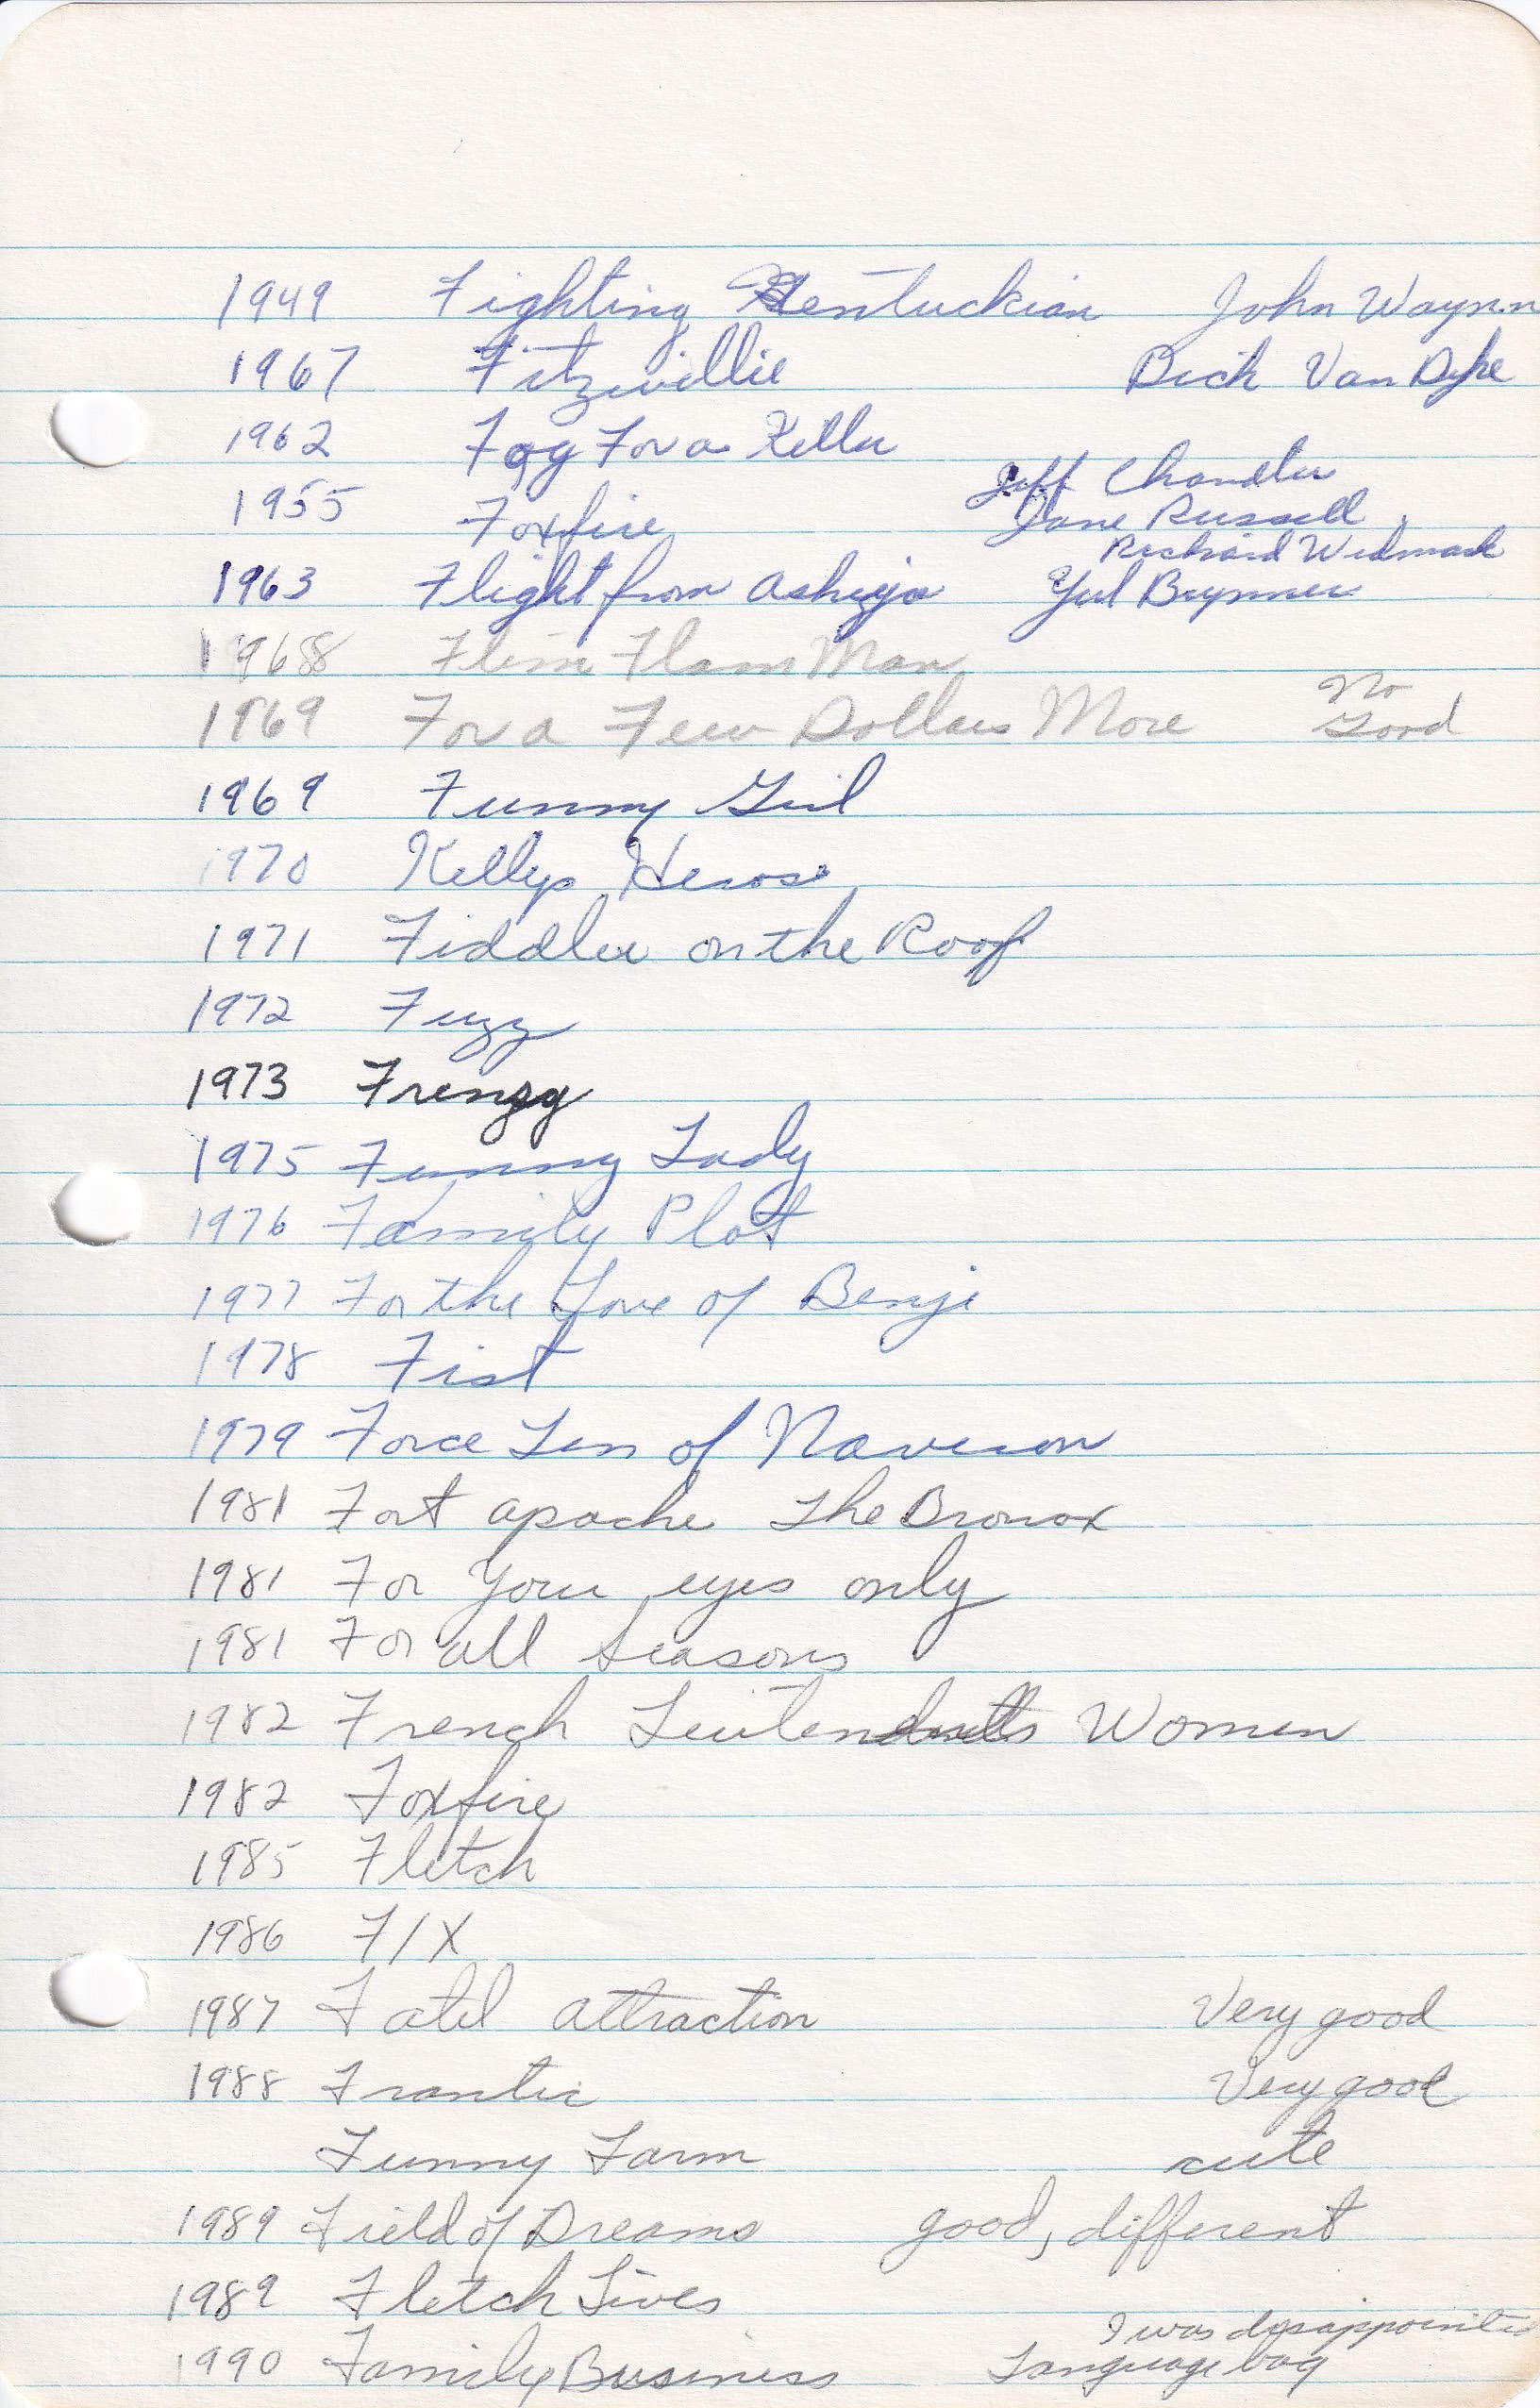 1949 Fighting Kentuckian John Waynn
1967 Fitzwillie Dick Van Dyke
1962 Fog For a Killer
Jeff Chandler
1955 Foxfire Jane Russell
Richard Widmark
1963 Flight from Ashiya Yul Brynner
1968 Flim Flam Man
No
1969 For a Few Dollars More Good
1969 Funny Girl
1970 Kellys Heros
1971 Fiddler on the Roof
1972 Fuzz
1973 Frenzy
1975 Funny Lady
1976 Family Plot
1977 For the Love of Benji
1978 Fist
1979 Force Ten of Naveron
1981 Fort apache The Bronox
1981 For Your eyes only
1981 For all Seasons
1982 French Women
1982 Foxfire
1985 Fletch
1986 F/X
1987 Fatel attraction Very good
1988 Frantic Very good
Funny Farm cute
1989 Field of Dreams good, different
1989 Fletch Lives
I was disappointed
1990 Family Business Language bad